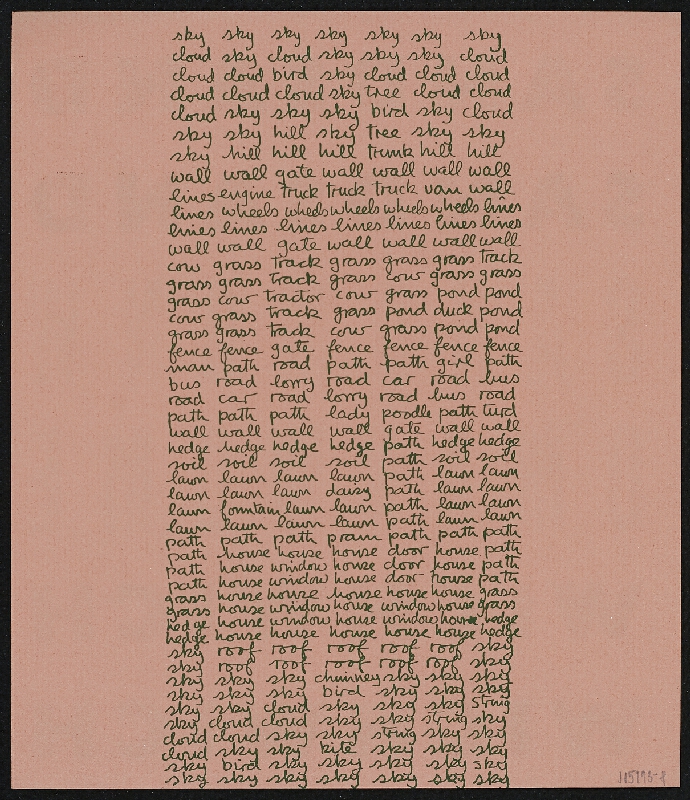 sky sky sky sky sky sky sky
cloud sky cloud sky sky sky cloud
cloud cloud bird sky cloud cloud cloud
cloud cloud cloud sky tree cloud cloud
cloud sky sky sky bird sky cloud
sky sky hill sky tree sky sky
sky hill hill hill trunk hill hill
wall wall gate wall wall wall wall
lines engine truck truck truck van wall
lines wheels wheels wheels wheels wheels lines
lines lines lines lines lines lines lines
wall wall gate wall wall wall wall
cow grass track grass grass grass track
grass grass track grass cow grass grass
grass cow tractor cow grass pond pond
cow grass track grass pond duck pond
grass grass track cow grass pond pond
fence fence gate fence fence fence fence
man path road path path girl path
bus road lorry road car road bus
road car road lorry road bus road
path path path lady poodle path turd
wall wall wall wall gate wall wall
hedge hedge hedge hedge path hedge hedge
soil soil soil soil path soil soil
lawn lawn lawn lawn path lawn lawn
lawn lawn lawn daisy path lawn lawn
lawn fountain lawn lawn path lawn lawn
lawn lawn lawn lawn path lawn lawn
path path path pram path path path
path house house house door house path
path house window house door house path
path house window house door house path
grass house house house house house grass
grass house window house window house grass
hedge house window house window house hedge
hedge house house house house house hedge
sky roof roof roof roof roof sky
sky roof roof roof roof roof sky
sky sky sky chimney sky sky sky
sky sky sky bird sky sky sky
sky sky cloud sky sky sky string
sky cloud cloud sky sky string sky
cloud cloud sky sky string sky sky
cloud sky sky kite sky sky sky
sky bird sky sky sky sky sky
sky sky sky sky sky sky sky